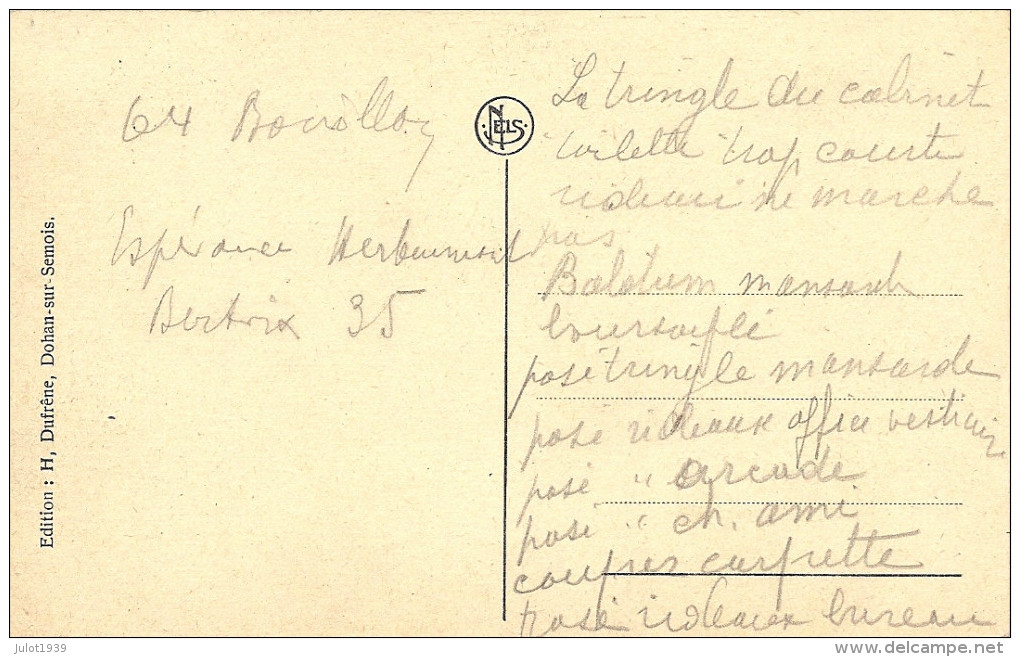 64 Bouillon
Espérance Herbeumont
Bertrix 35
Edition : H, Dufrêne, Dohan-sur-Semois.
NELS
La tringle du cabinet
toilette trop courte
rideau ne marche
pas
Balatum mansarde
boursouflé
posé tringle mansarde
posé rideaux office vestiaire
posé " arcade
posé " ch. ami
coupes carpette
posé rideaux bureau
julot1939
delcampe.net